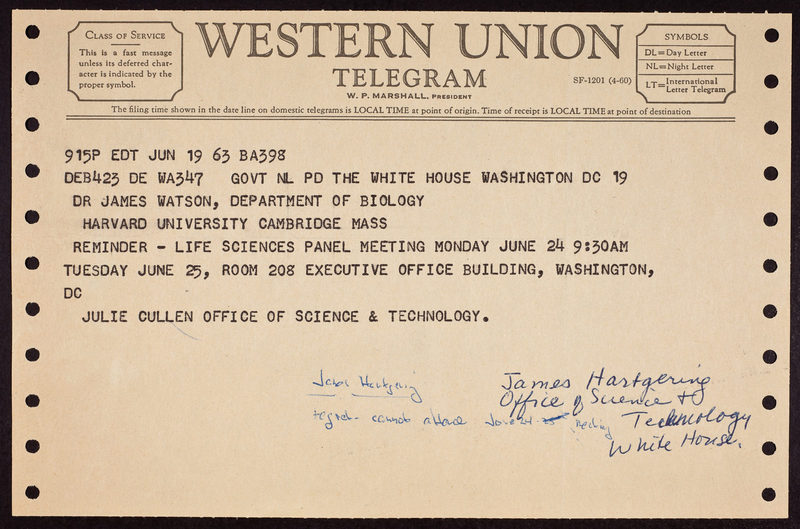 CLASS OF SERVICE
This is a fast message
unless its deferred char-
acter is indicated by the
proper symbol.
WESTERN UNION
TELEGRAM
W. P. MARSHALL, PRESIDENT
SF-1201 (4-60)
SYMBOLS
DL=Day Letter
NL=Night Letter
LT=International Letter Telegram
The filing time shown in the date line on domestic telegrams is LOCAL TIME at point of origin. Time of receipt is LOCAL TIME at point of destination
915P EDT JUN 19 63 BA398
DEB423 DE WA347 GOVT NL PD THE WHITE HOUSE WASHINGTON DC 19
DR JAMES WATSON, DEPARTMENT OF BIOLOGY
HARVARD UNIVERSITY CAMBRIDGE MASS
REMINDER - LIFE SCIENCES PANEL MEETING MONDAY JUNE 24 9:30AM
TUESDAY JUNE 25, ROOM 208 EXECUTIVE OFFICE BUILDING, WASHINGTON,
DC
JULIE CULLEN OFFICE OF SCIENCE & TECHNOLOGY.
James Hartgering
regret- cannot attend June 24 meeting
James Hartgering
Office of Science &
Technology
White House.